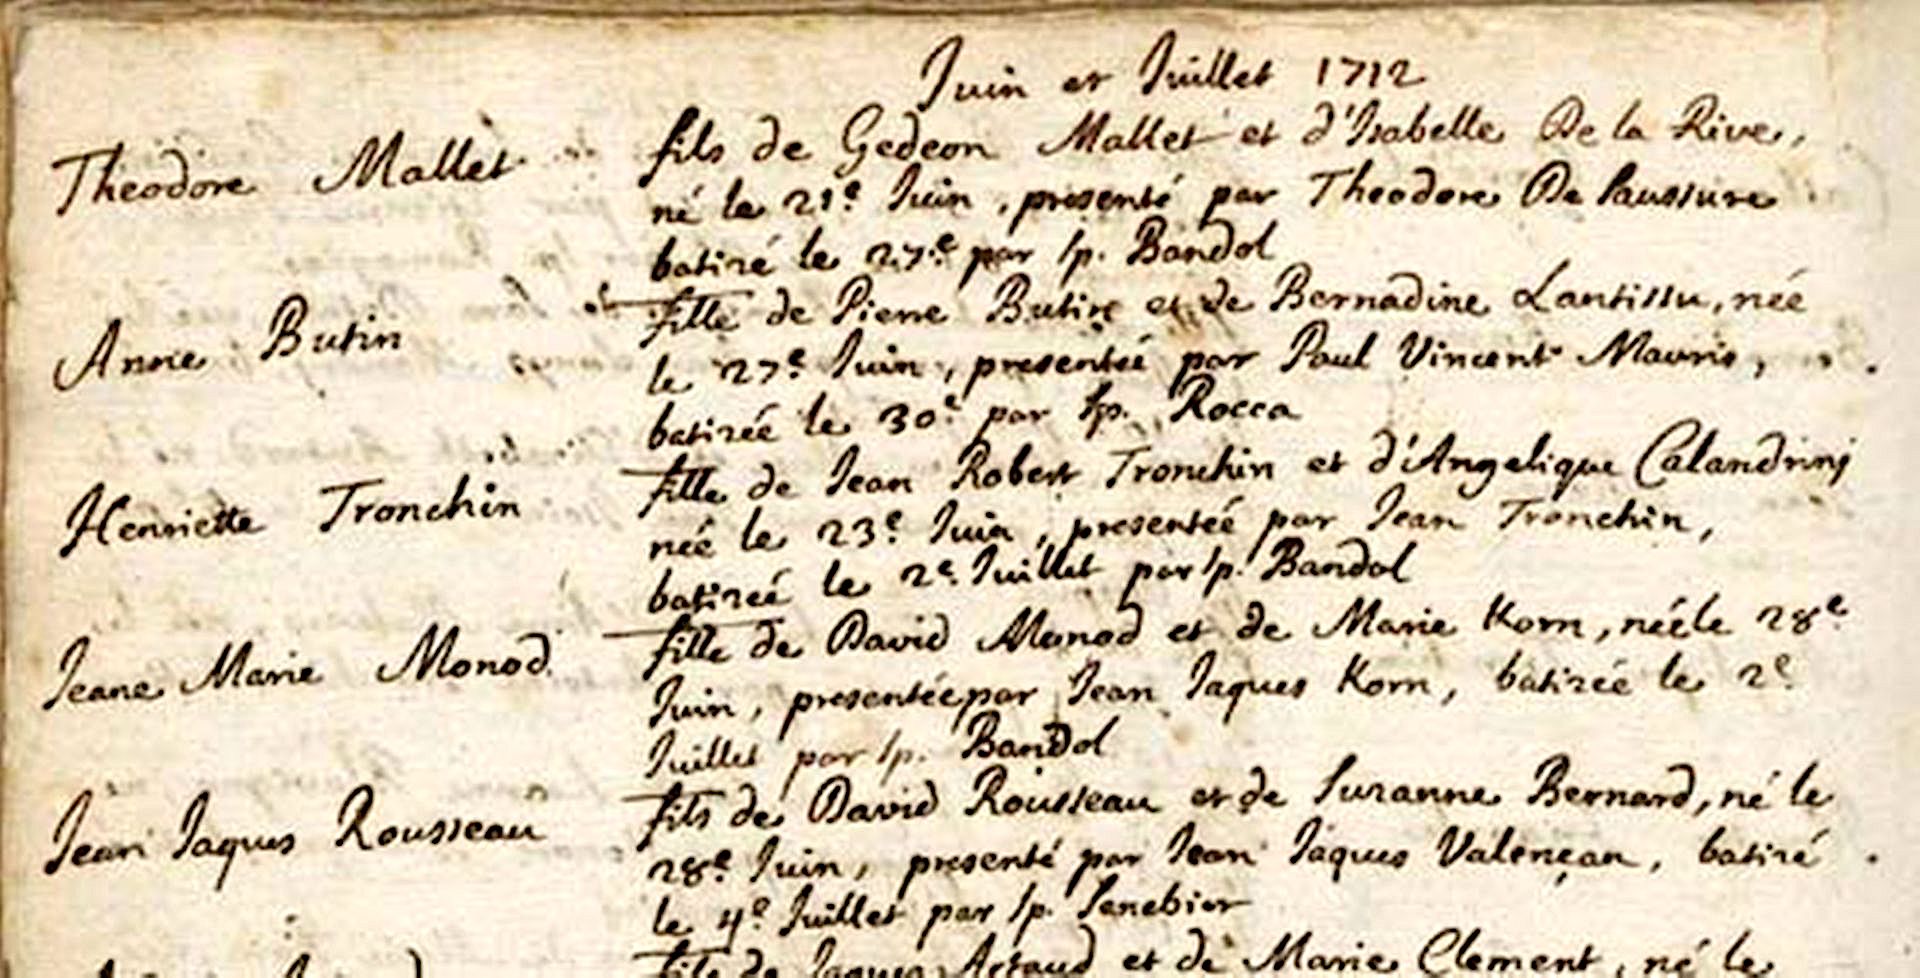 Juin et Juillet 1712
Theodore Mallet fils de Gedeon Mallet et d'Isabelle De la Rive,
né le 21e Juin, presenté par Theodore De Saussure
batizé le 27e par Sp. Bandol
Anne Butin fille de Pierre Butin et de Bernadine Lantissu, née
le 27e Juin, presentée par Paul Vincent Mauris,
batizée le 30e par Sp. Rocca
Henriette Tronchin fille de Jean Robert Tronchin et d'Angelique Calandrinj
née le 23e Juin, presentée par Jean Tronchin,
batizée le 2e Juillet par Sp. Bandol
Jeane Marie Monod fille de David Monod et de Marie Korn, née le 28e
Juin, presentée par Jean Jaques Korn, batizée le 2e
Juillet par Sp. Bandol
Jean Jaques Rousseau fils de David Rousseau et de Suzanne Bernard, né le
28e Juin, presenté par Jean Jaques Valençan, batizé
le 4e Juillet par Sp. Senebier
fils de Jaques Artaud et de Marie Clement, né le